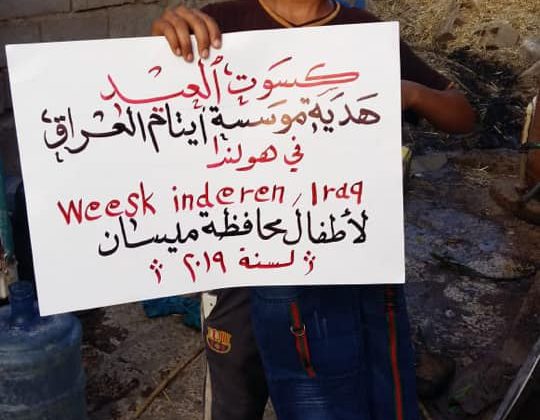 كسوت العيد
هدية مؤسسة ايتام العراق
في هولندا
Weesk inderen, Iraq
لأطفال محافظة ميسان
لسنة ٢٠١٩